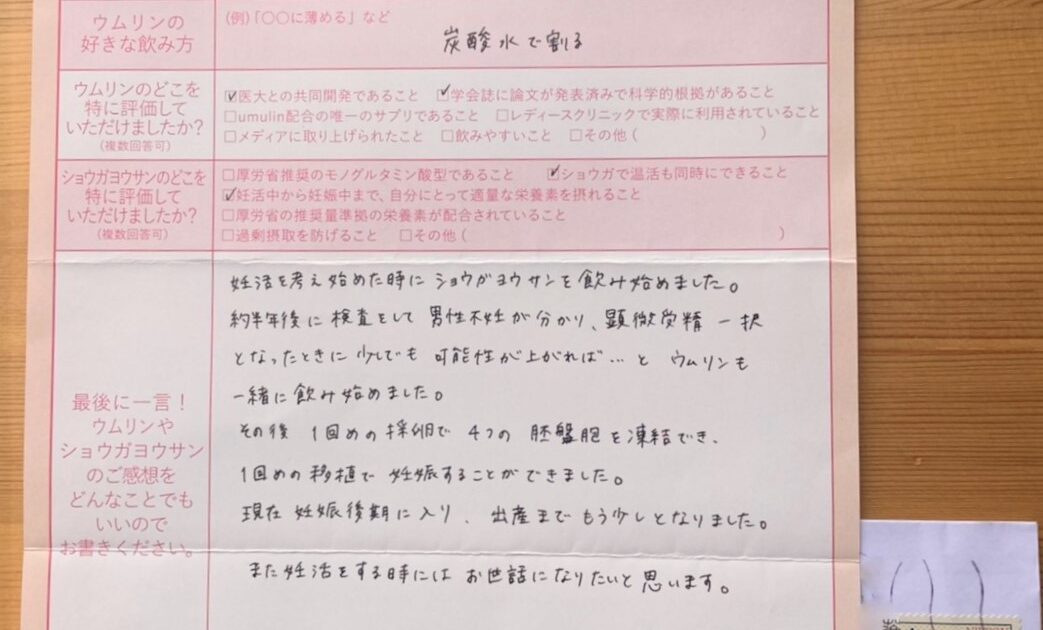 ウムリンの
好きな飲み方
(例)「〇〇に薄める」など
炭酸水で割る
ウムリンのどこを
特に評価して
いただけましたか?
(複数回答可)
☑医大との共同開発であること ☑学会誌に論文が発表済みで科学的根拠があること
□umulin配合の唯一のサプリであること □レディースクリニックで実際に利用されていること
□メディアに取り上げられたこと □飲みやすいこと □その他( )
ショウガヨウサンのどこを
特に評価して
いただけましたか?
(複数回答可)
□厚労省推奨のモノグルタミン酸型であること ☑ショウガで温活も同時にできること
☑妊活中から妊娠中まで、自分にとって適量な栄養素を摂れること
□厚労省の推奨量準拠の栄養素が配合されていること
□過剰摂取を防げること □その他( )
最後に一言!
ウムリンや
ショウガヨウサン
のご感想を
どんなことでも
いいので
お書きください。
妊活を考え始めた時にショウガヨウサンを飲み始めました。
約半年後に検査をして男性不妊が分かり、顕微受精一択
となったときに少しでも可能性が上がれば…とウムリンも
一緒に飲み始めました。
その後1回めの採卵で4つの胚盤胞を凍結でき、
1回めの移植で妊娠することができました。
現在妊娠後期に入り、出産までもう少しとなりました。
また妊活をする時にはお世話になりたいと思います。